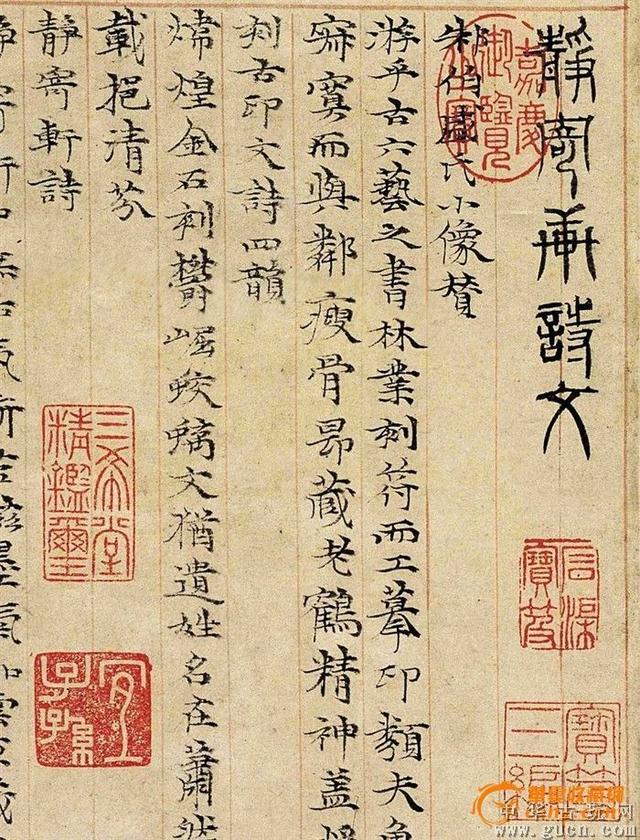 靜寄軒詩文
朱伯盛氏小像賛
游乎古六藝之書林業刻符而工摹印類夫魚
寂寞而與鄰瘦骨昂藏老鶴精神蓋將
刻古印文詩四韻
煒煌金石刻鬱崛蛟螭文猶遺姓名在蕭然
載挹清芬
靜寄軒詩
嘉慶御覽之寶
石渠寶笈
寶笈三編
三希堂精鑑璽
宜子孫
中华古玩网
www.gucn.com